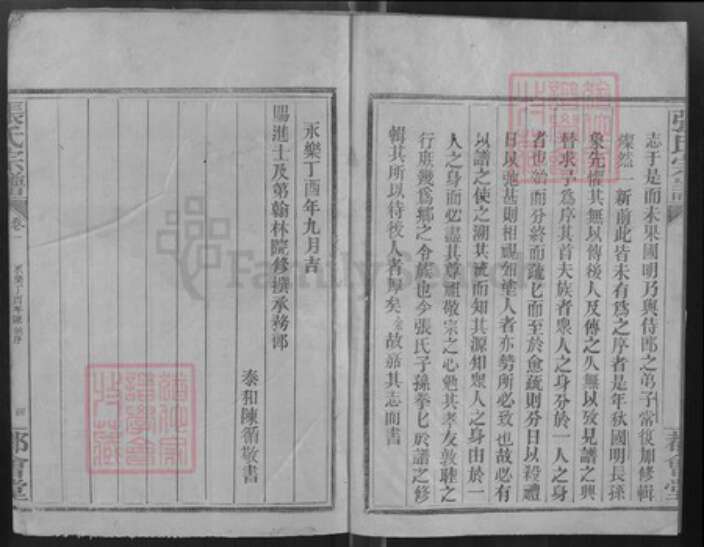 志于是而未果國明乃與侍郎之弟子當復加修輯
燦然一新前此皆未有為之序者是年秋國明長孫
象先懼其無以傳後人及傳之久無以攷見譜之興
替求予為序其首夫族者眾人之身分於一人之身
者也始而分終而疏匕而至於愈疏則分日以殺禮
日以弛甚則相視如塗人者亦勢所必致也故必有
以譜之使之溯其流而知其源知眾人之身由於一
人之身而必盡其尊祖敬宗之心勉其孝友敦睦之
行庶幾為鄉之令族也今張氏子孫拳匕於譜之修
輯其所以待後人者厚矣 故嘉其志而書
永樂丁酉年九月吉
賜進士及第翰林院修撰承務郎
泰和陳循敬書
張氏宗譜
卷一
永樂丁酉年陳循序
都會堂
張氏宗譜
都會堂